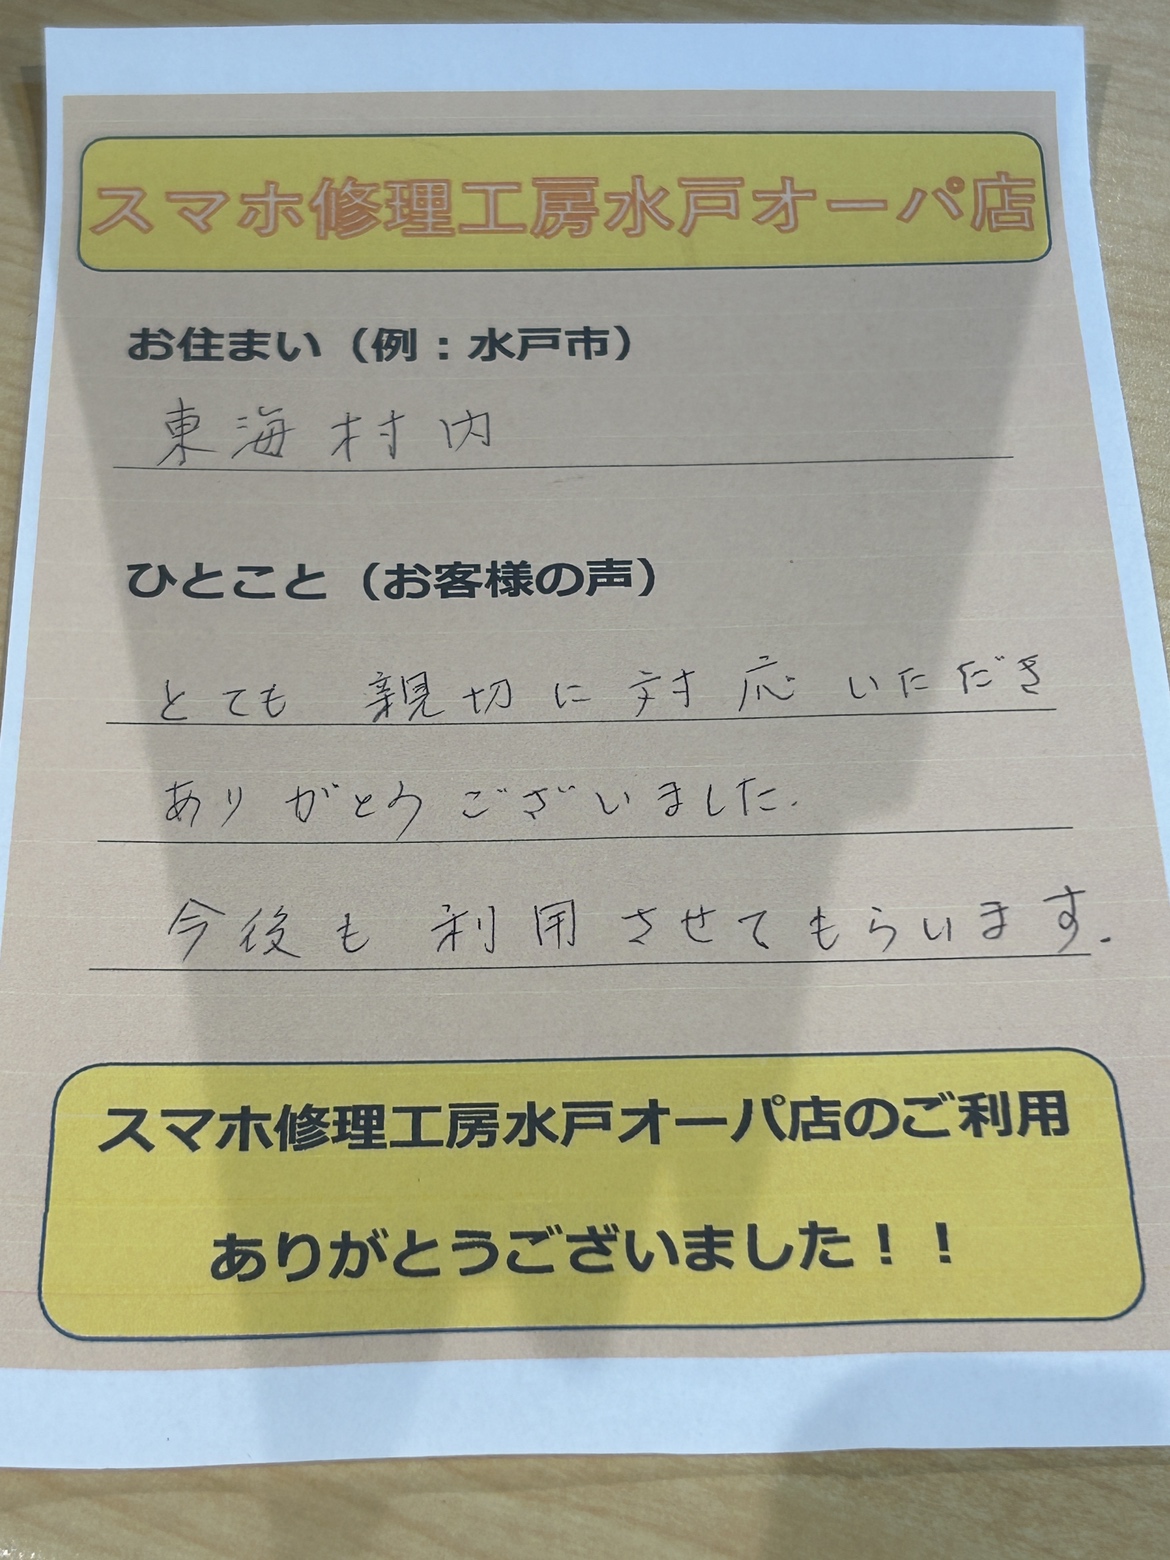 スマホ修理工房水戸オーパ店
お住まい（例：水戸市）
東海村内
ひとこと（お客様の声）
とても親切に対応いただき
ありがとうございました.
今後も利用させてもらいます.
スマホ修理工房水戸オーパ店のご利用
ありがとうございました！！